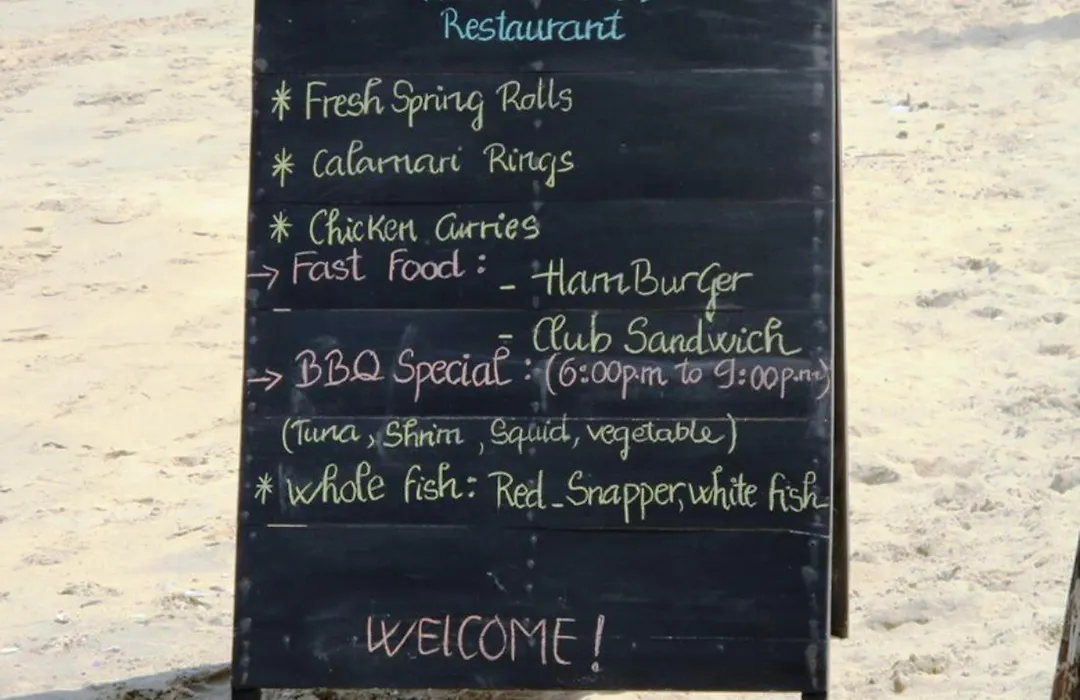 Restaurant
* Fresh Spring Rolls
* Calamari Rings
* Chicken Curries
→ Fast Food :
- HamBurGer
- Club Sandwich
→ BBQ Special : (6:00p.m to 9:00p.m)
(Tuna, Shrim, Squid, vegetable)
* Whole fish: Red_Snapper, white fish
WELCOME!